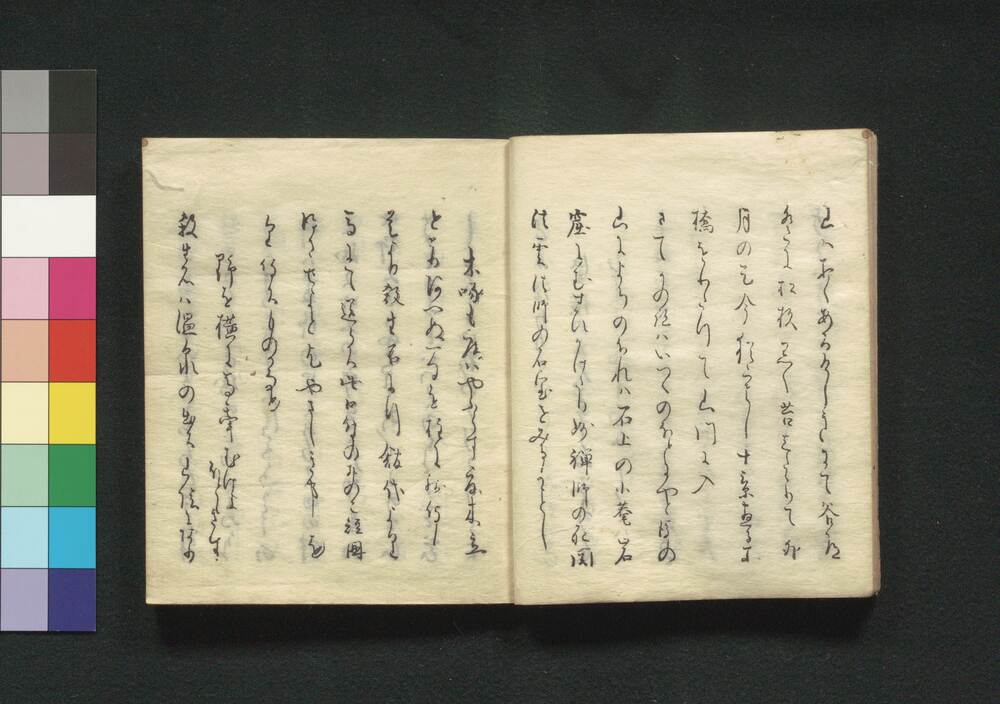 山はおくあるけしきにて谷道
はるかに松杉黒く苔したゝりて卯
月の天今猶寒し十景尽る所
橋をわたつて山門に入
さてかの跡はいつくのほとにやと後の
山によちのほれは石上の小菴岩
窟にむすひかけたり妙禅師の死関
法雲法師の石室をみることし
木啄も庵はやふらす夏木立
ととりあへぬ一句を柱に残侍し
是より殺生石に行館代より
馬にて送らる此口付のおのこ短冊
得させよと乞やさしき事を
望侍るものかなと
野を横に馬牽むけよ
ほとゝきす
殺生石は温泉の出る山陰にあり